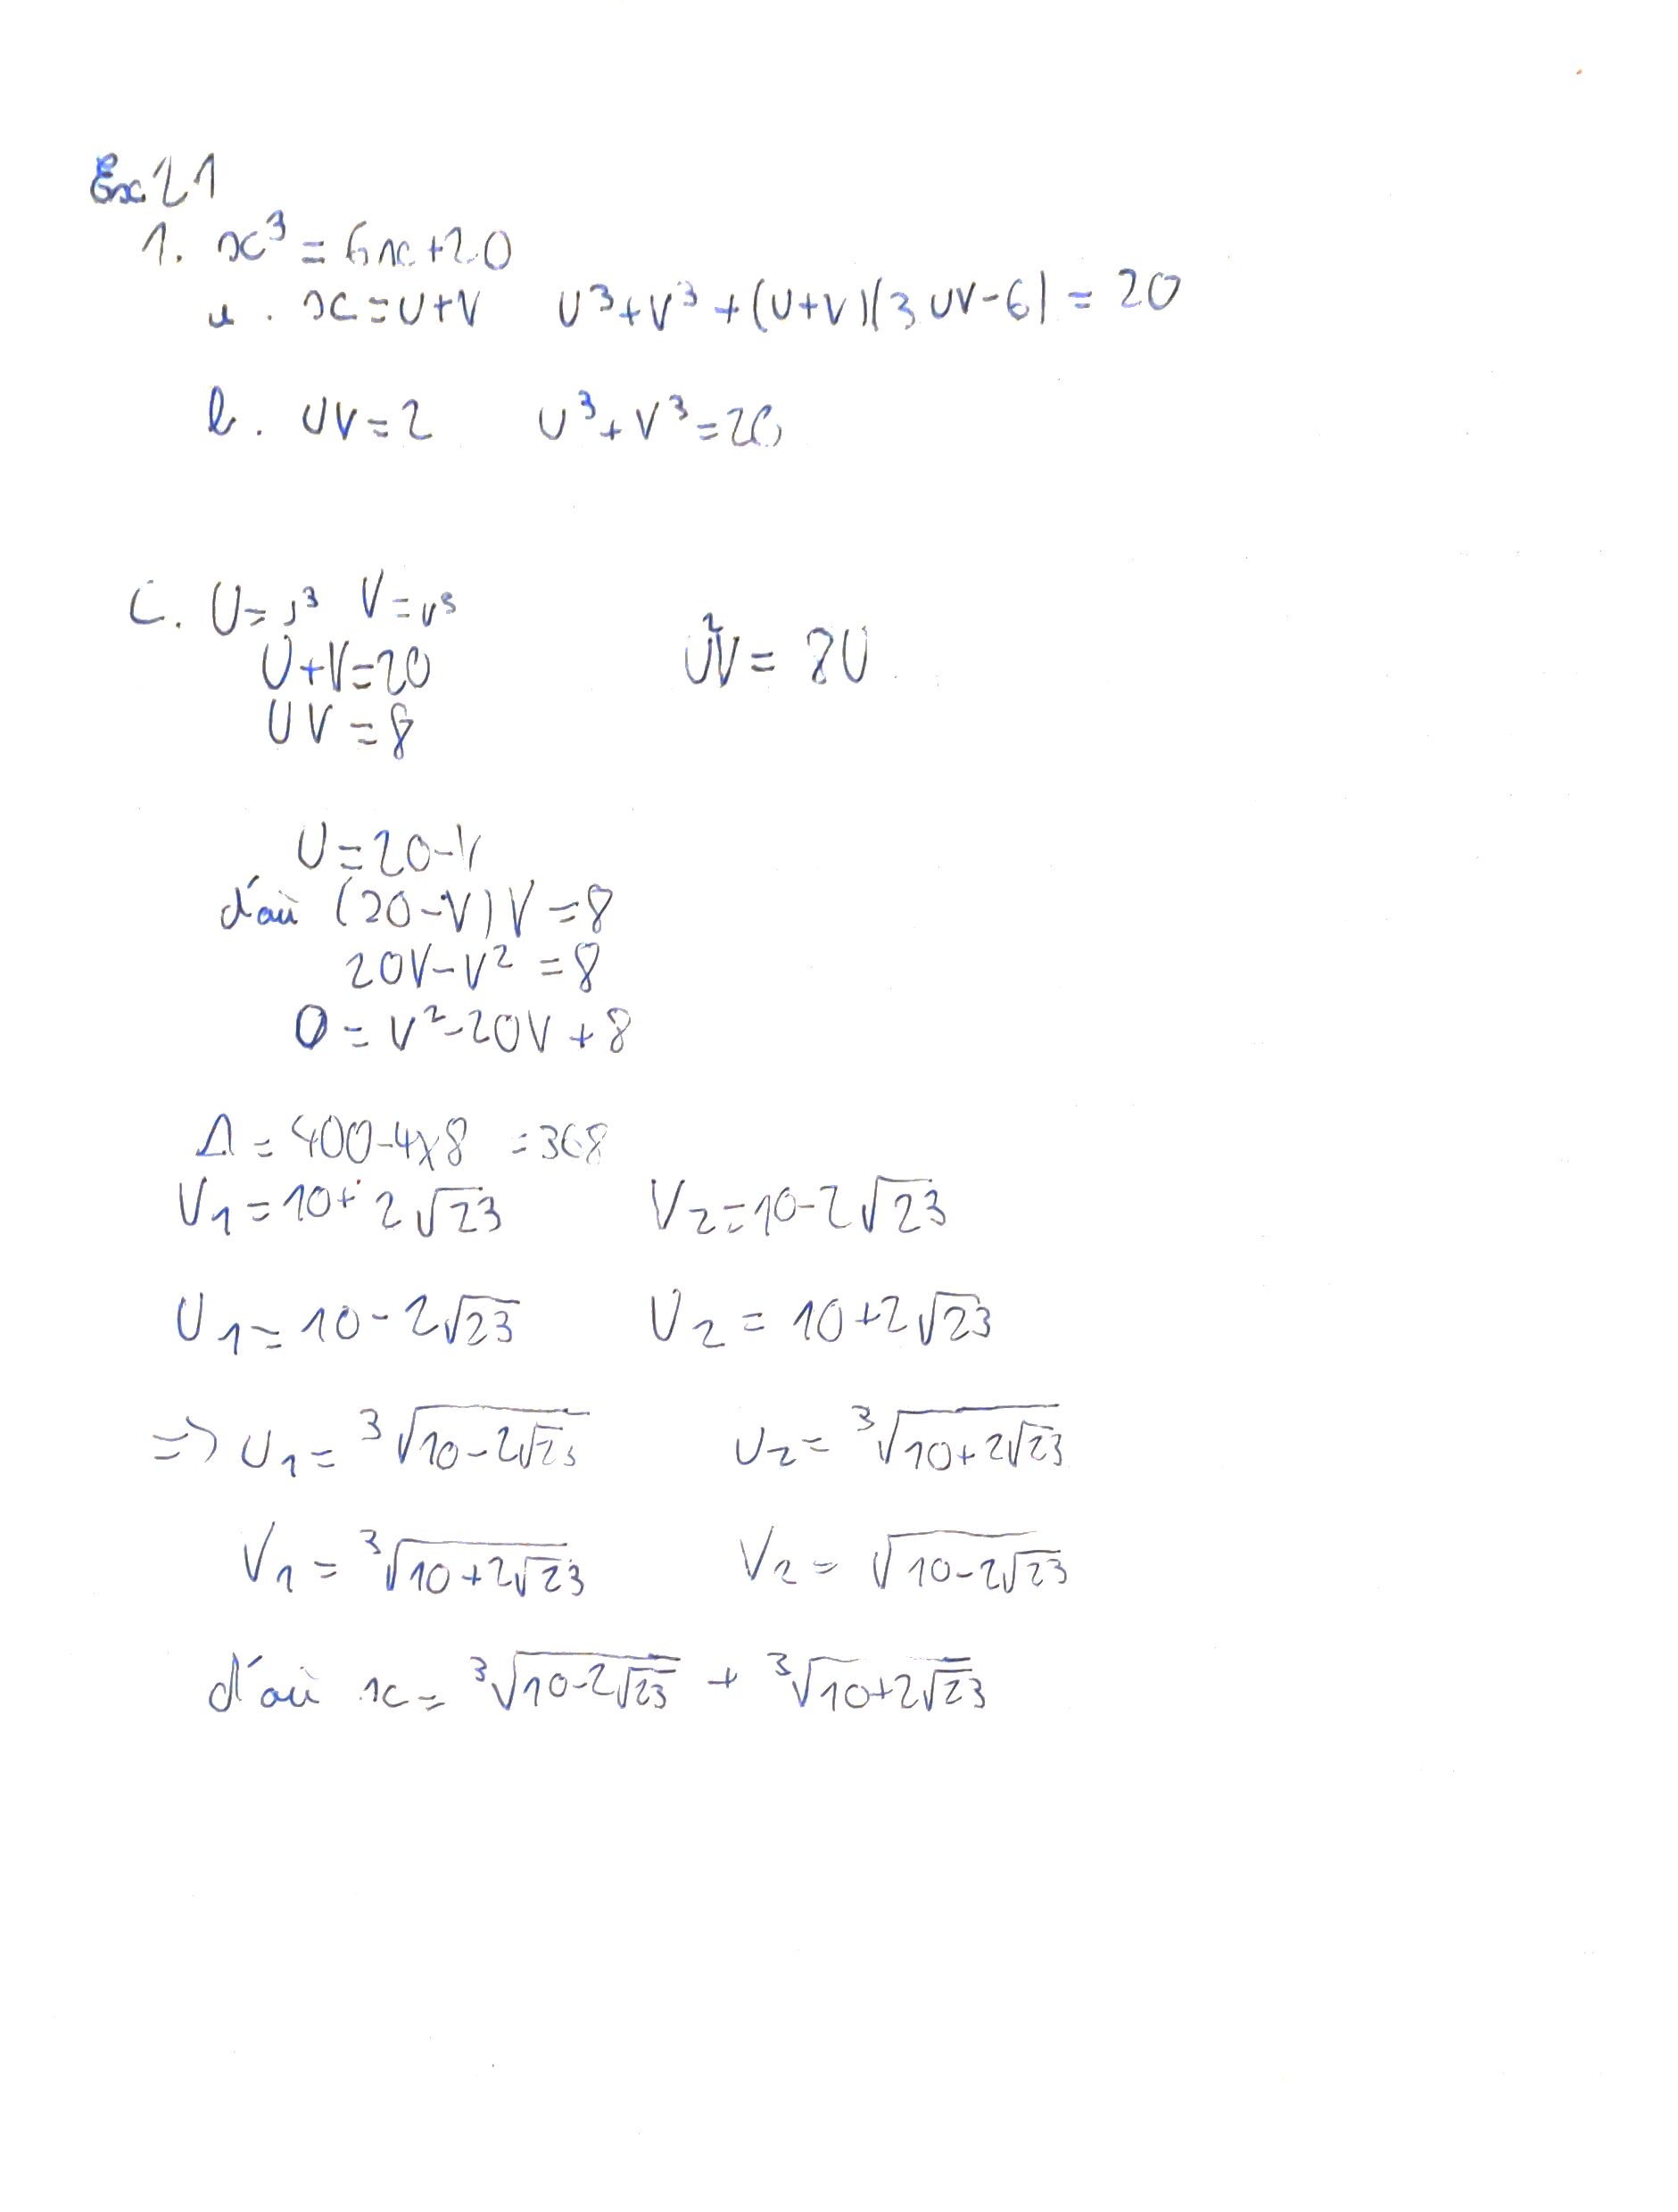 Exc 21
1. x³ = 6x+20
a. x = u+v u³+v³+(u+v)(3uv-6) = 20
b. uv=2 u³+v³=20
c. U=u³ V=v³
U+V=20 U²V = 8U
UV = 8
U=20-V
d'où (20-V)V=8
20V-V² = 8
0 = V²-20V+8
Δ = 400-4x8 = 368
V₁=10+2√23 V₂=10-2√23
U₁=10-2√23 U₂=10+2√23
=> u₁ = ³√(10-2√23) u₂ = ³√(10+2√23)
v₁ = ³√(10+2√23) v₂ = √(10-2√23)
d'où x = ³√(10-2√23) + ³√(10+2√23)